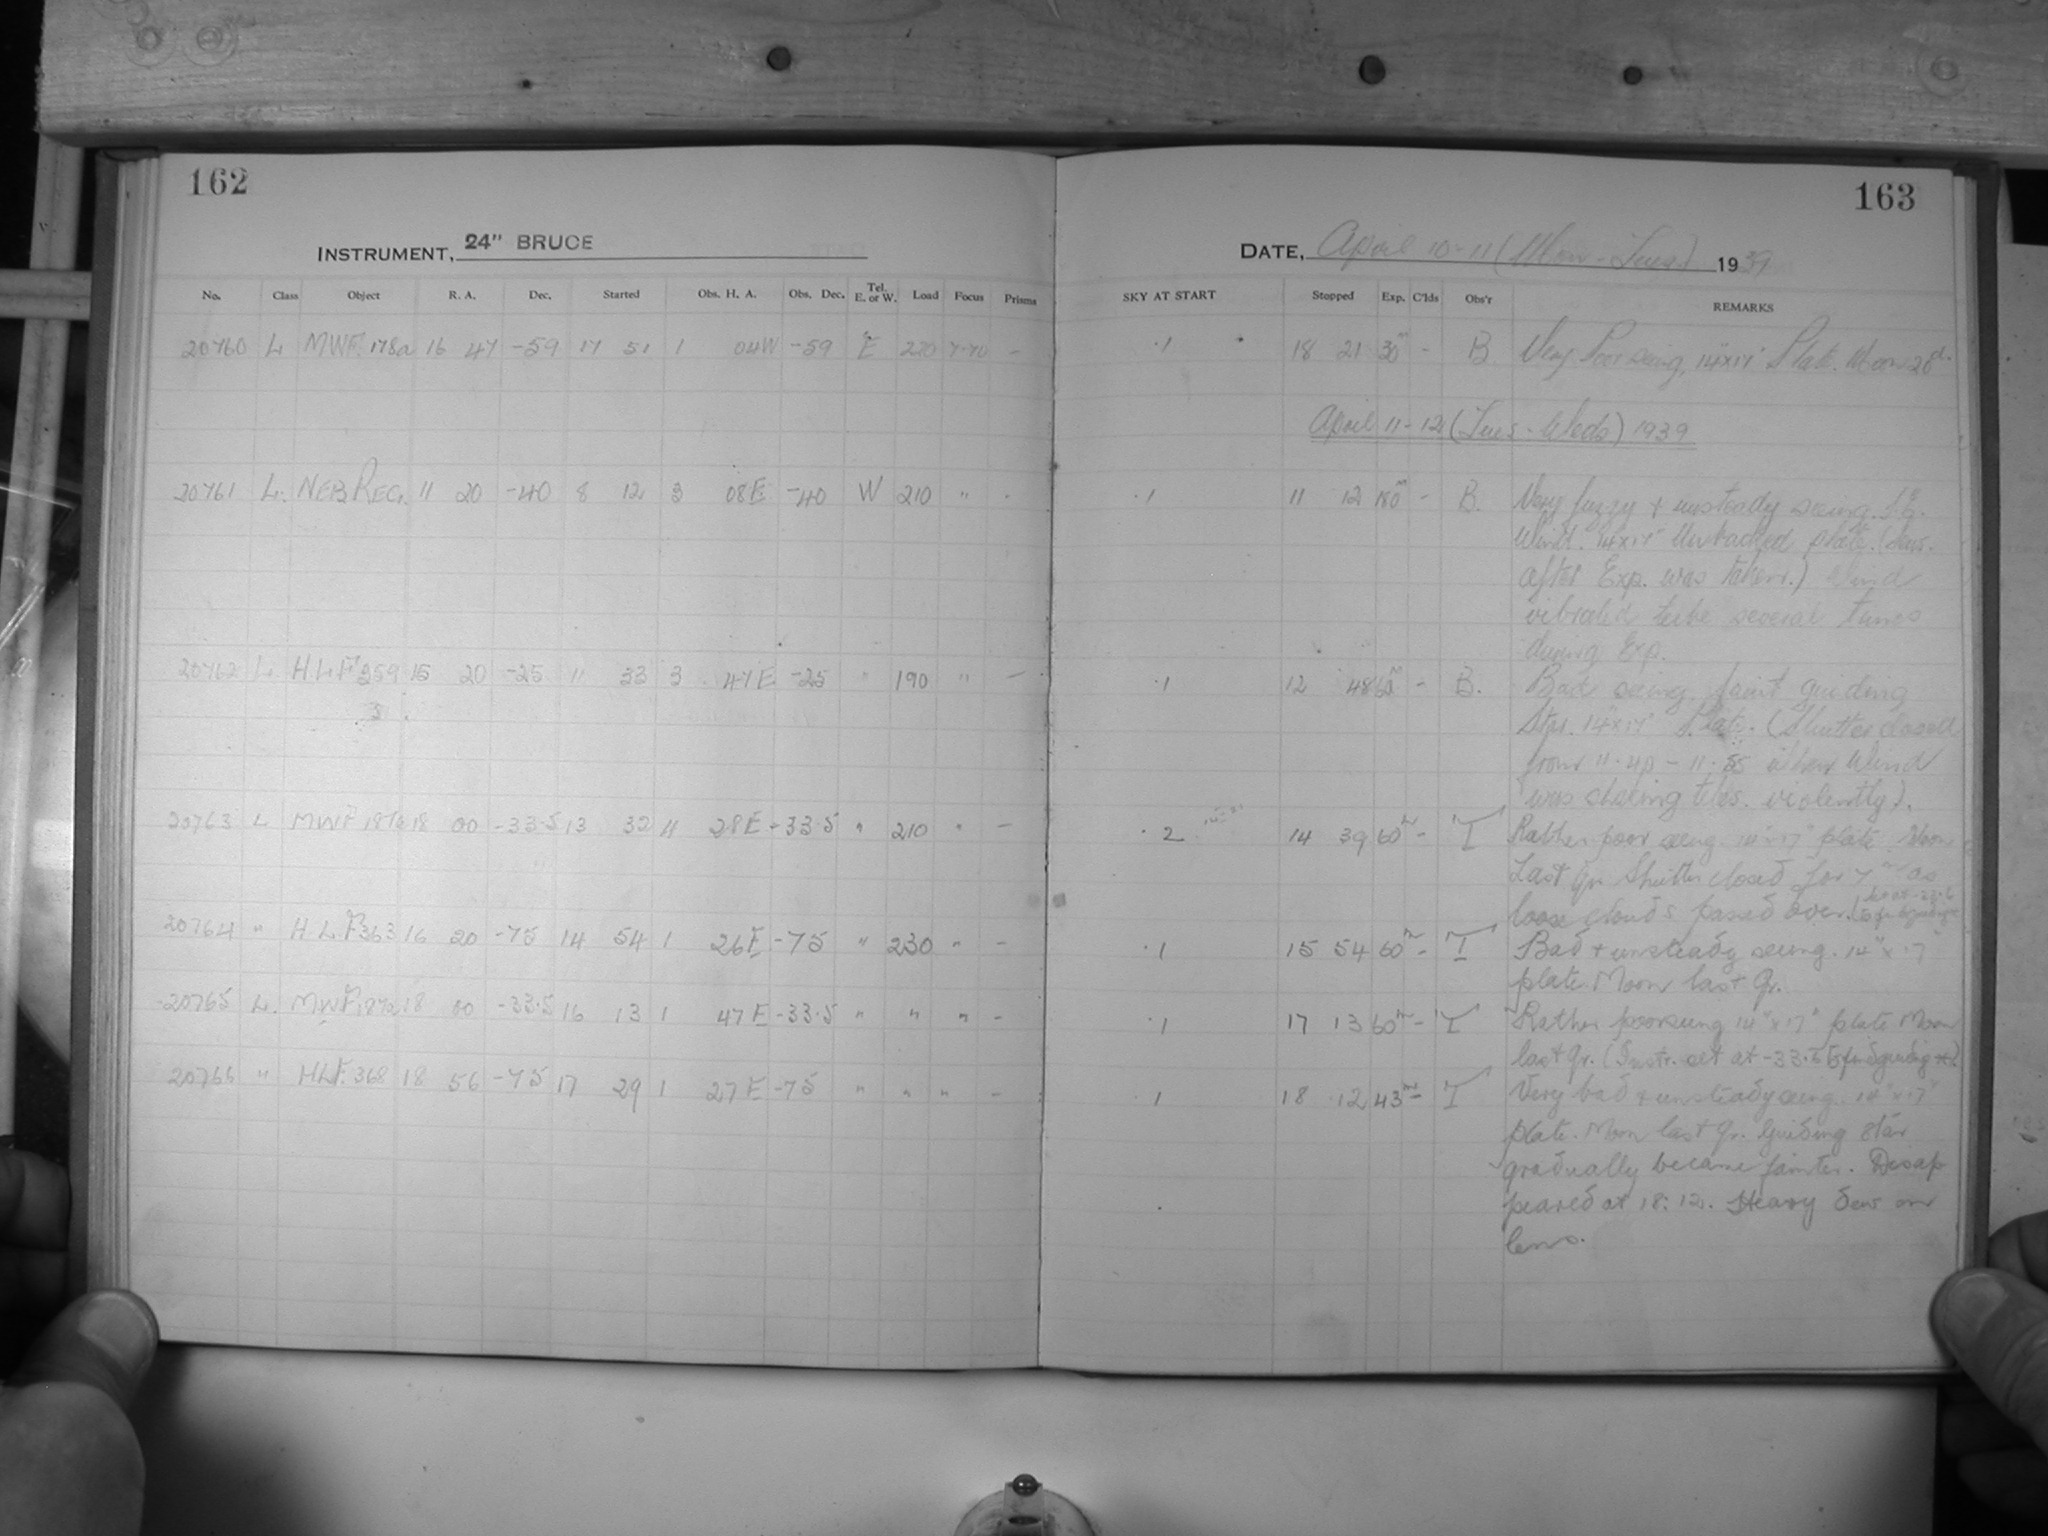 162
163
INSTRUMENT, 24" BRUCE
DATE, April 10-11 (Mon-Tues) 1939
No. Class Object R. A. Dec. Started Obs. H. A. Obs. Dec. Tel. E. or W. Load Focus Prisms SKY AT START Stopped Exp. C'lds Obs'r REMARKS
20760 L MWF. 178a 16 47 -59 17 51 1 04W -59 E 220 7.70 - .1 18 21 30m - B. Very Poor seeing, 14"x17" Plate. Moon 20d.
April 11-12 (Tues-Weds) 1939
20761 L. NEB. REG. 11 20 -40 8 12 3 08E -40 W 210 " - .1 11 12 180m - B. Very fuzzy + unsteady seeing. S.E.
Wind. 14"x17" Unbacked plate.
after Exp. was taken.) Wind
vibrated tube several times
during Exp.
20762 L. HLF 359 15 20 -25 11 33 3 47E -25 " 190 " - .1 12 48 60m - B. Bad seeing, faint guiding
Star. 14"x17" Plate. (Shutter closed
from 11.40 - 11.55 when Wind
was shaking violently).
20763 L MWF 187a 18 00 -33.5 13 32 11 28E -33.5 " 210 " - .2 14 39 60m - T Rather poor seeing. 14"x17" plate Moon
Last Qr. Shutter closed for 7m as
loose clouds passed over.
20764 " HLF 363 16 20 -75 14 54 1 26E -75 " 230 " - .1 15 54 60m - T Bad + unsteady seeing. 14"x17"
plate. Moon last Qr.
20765 L. MWF. 187a 18 00 -33.5 16 13 1 47E -33.5 " " " - .1 17 13 60m - T Rather poor seeing 14"x17" plate Moon
last Qr. (Instr. set at -33.5 to find guiding *)
20766 " HLF. 368 18 56 -75 17 29 1 27E -75 " " " - .1 18 12 43m - T Very bad + unsteady seeing. 14"x17"
plate. Moon last Qr. Guiding star
gradually became fainter. Disap
peared at 18:12. Heavy dew on
lens.